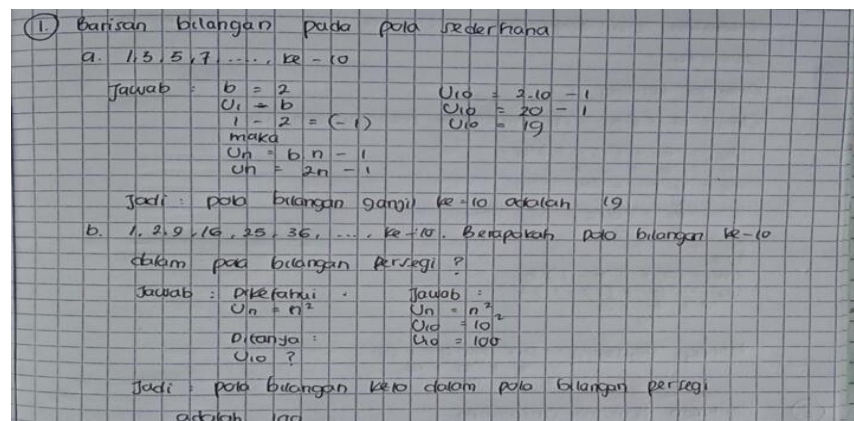 1. Barisan bilangan pada pola sederhana
a. 1, 3, 5, 7 ...., ke-10
Jawab : b = 2
U1 - b
1 - 2 = (-1)
maka
Un = b n - 1
Un = 2n - 1
U10 = 2.10 - 1
U10 = 20 - 1
U10 = 19
Jadi : pola bilangan ganjil ke-10 adalah 19
b. 1, 2, 9, 16, 25, 36, ..., ke-10. Berapakah pola bilangan ke-10
dalam pola bilangan persegi ?
Jawab : Diketahui :
Un = n²
Ditanya :
U10 ?
Jawab :
Un = n²
U10 = 10²
U10 = 100
Jadi : pola bilangan ke10 dalam pola bilangan persegi
adalah 100